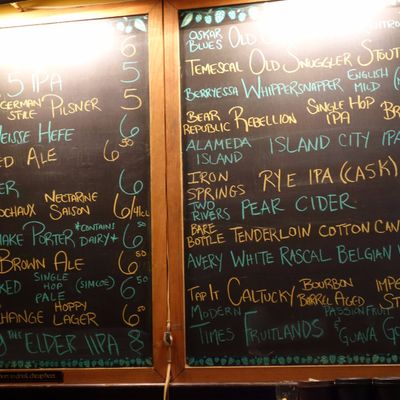 6
.5 IPA 5
"GERMAN" STYLE PILSNER 5
WEISSE HEFE 6
ED ALE 6.50
ER 6
NECTARINE SAISON 6/4
PORTER *CONTAINS DAIRY* 6.50
BROWN ALE 6.50
SINGLE HOP PALE (SIMCOE) 6.50
HOPPY LAGER 6.50
THE ELDER IIPA 8
OSKAR BLUES OLD
TEMESCAL OLD SNUGGLER STOUT
BERRYESSA WHIPPERSNAPPER ENGLISH MILD
BEAR REPUBLIC REBELLION SINGLE HOP IPA BR
ALAMEDA ISLAND ISLAND CITY IPA
IRON SPRINGS RYE IPA (CASK)
TWO RIVERS PEAR CIDER
BARE BOTTLE TENDERLOIN COTTON CAN
AVERY WHITE RASCAL BELGIAN
TAP IT CALTUCKY BOURBON BARREL AGED IMPE ST
MODERN TIMES FRUITLANDS PASSIONFRUIT & GUAVA GO